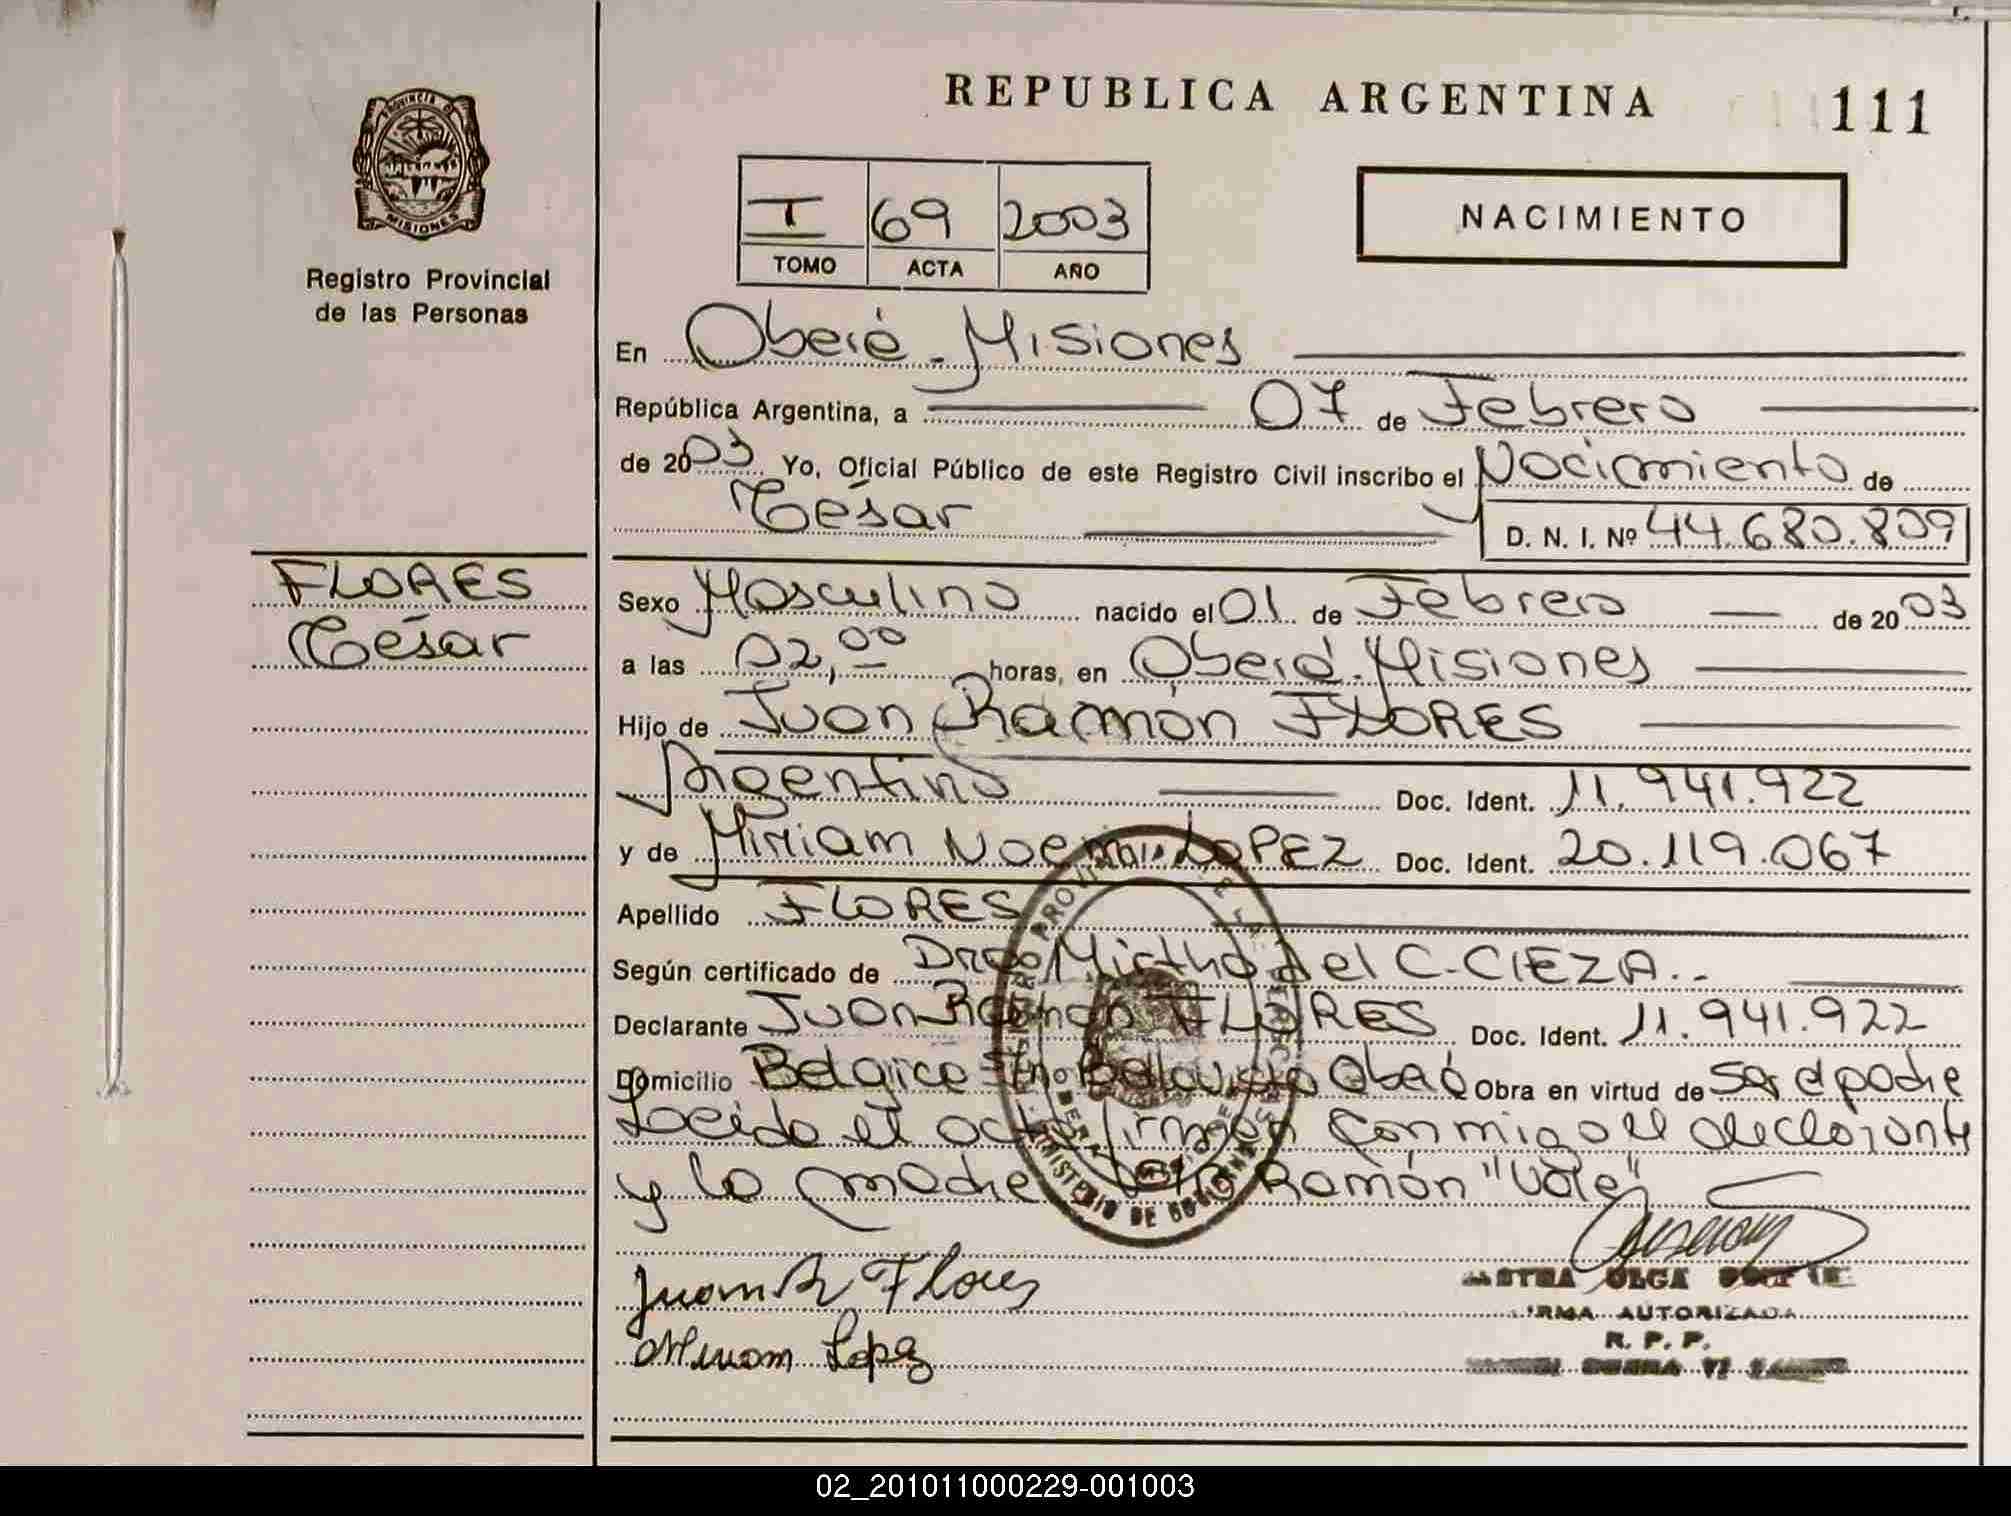 REPUBLICA ARGENTINA
111
PROVINCIA DE
MISIONES
Registro Provincial
de las Personas
I 69 2003
TOMO ACTA AÑO
NACIMIENTO
En Oberá - Misiones
República Argentina, a 07 de Febrero
de 2003 Yo, Oficial Público de este Registro Civil inscribo el Nacimiento de
César
D. N. I. Nº 44.680.809
FLORES
César
Sexo Masculino nacido el 01 de Febrero de 2003
a las 02,00 horas, en Oberá - Misiones
Hijo de Juan Ramón FLORES
Argentino Doc. Ident. 11.941.922
y de Miriam Noemi LOPEZ Doc. Ident. 20.119.067
Apellido FLORES
Según certificado de Dra Mirtha del C. CIEZA.-
Declarante Juan Ramón FLORES Doc. Ident. 11.941.922
Domicilio Belgica S/no Bella Vista Oberá Obra en virtud de ser el padre
Leida el acta firman conmigo el declarante
y la madre Ramón "Vale"
Juan R Flores
Miriam Lopez
OLGA
FIRMA AUTORIZADA
R. P. P.
MINISTERIO DE GOBIERNO
02_201011000229-001003